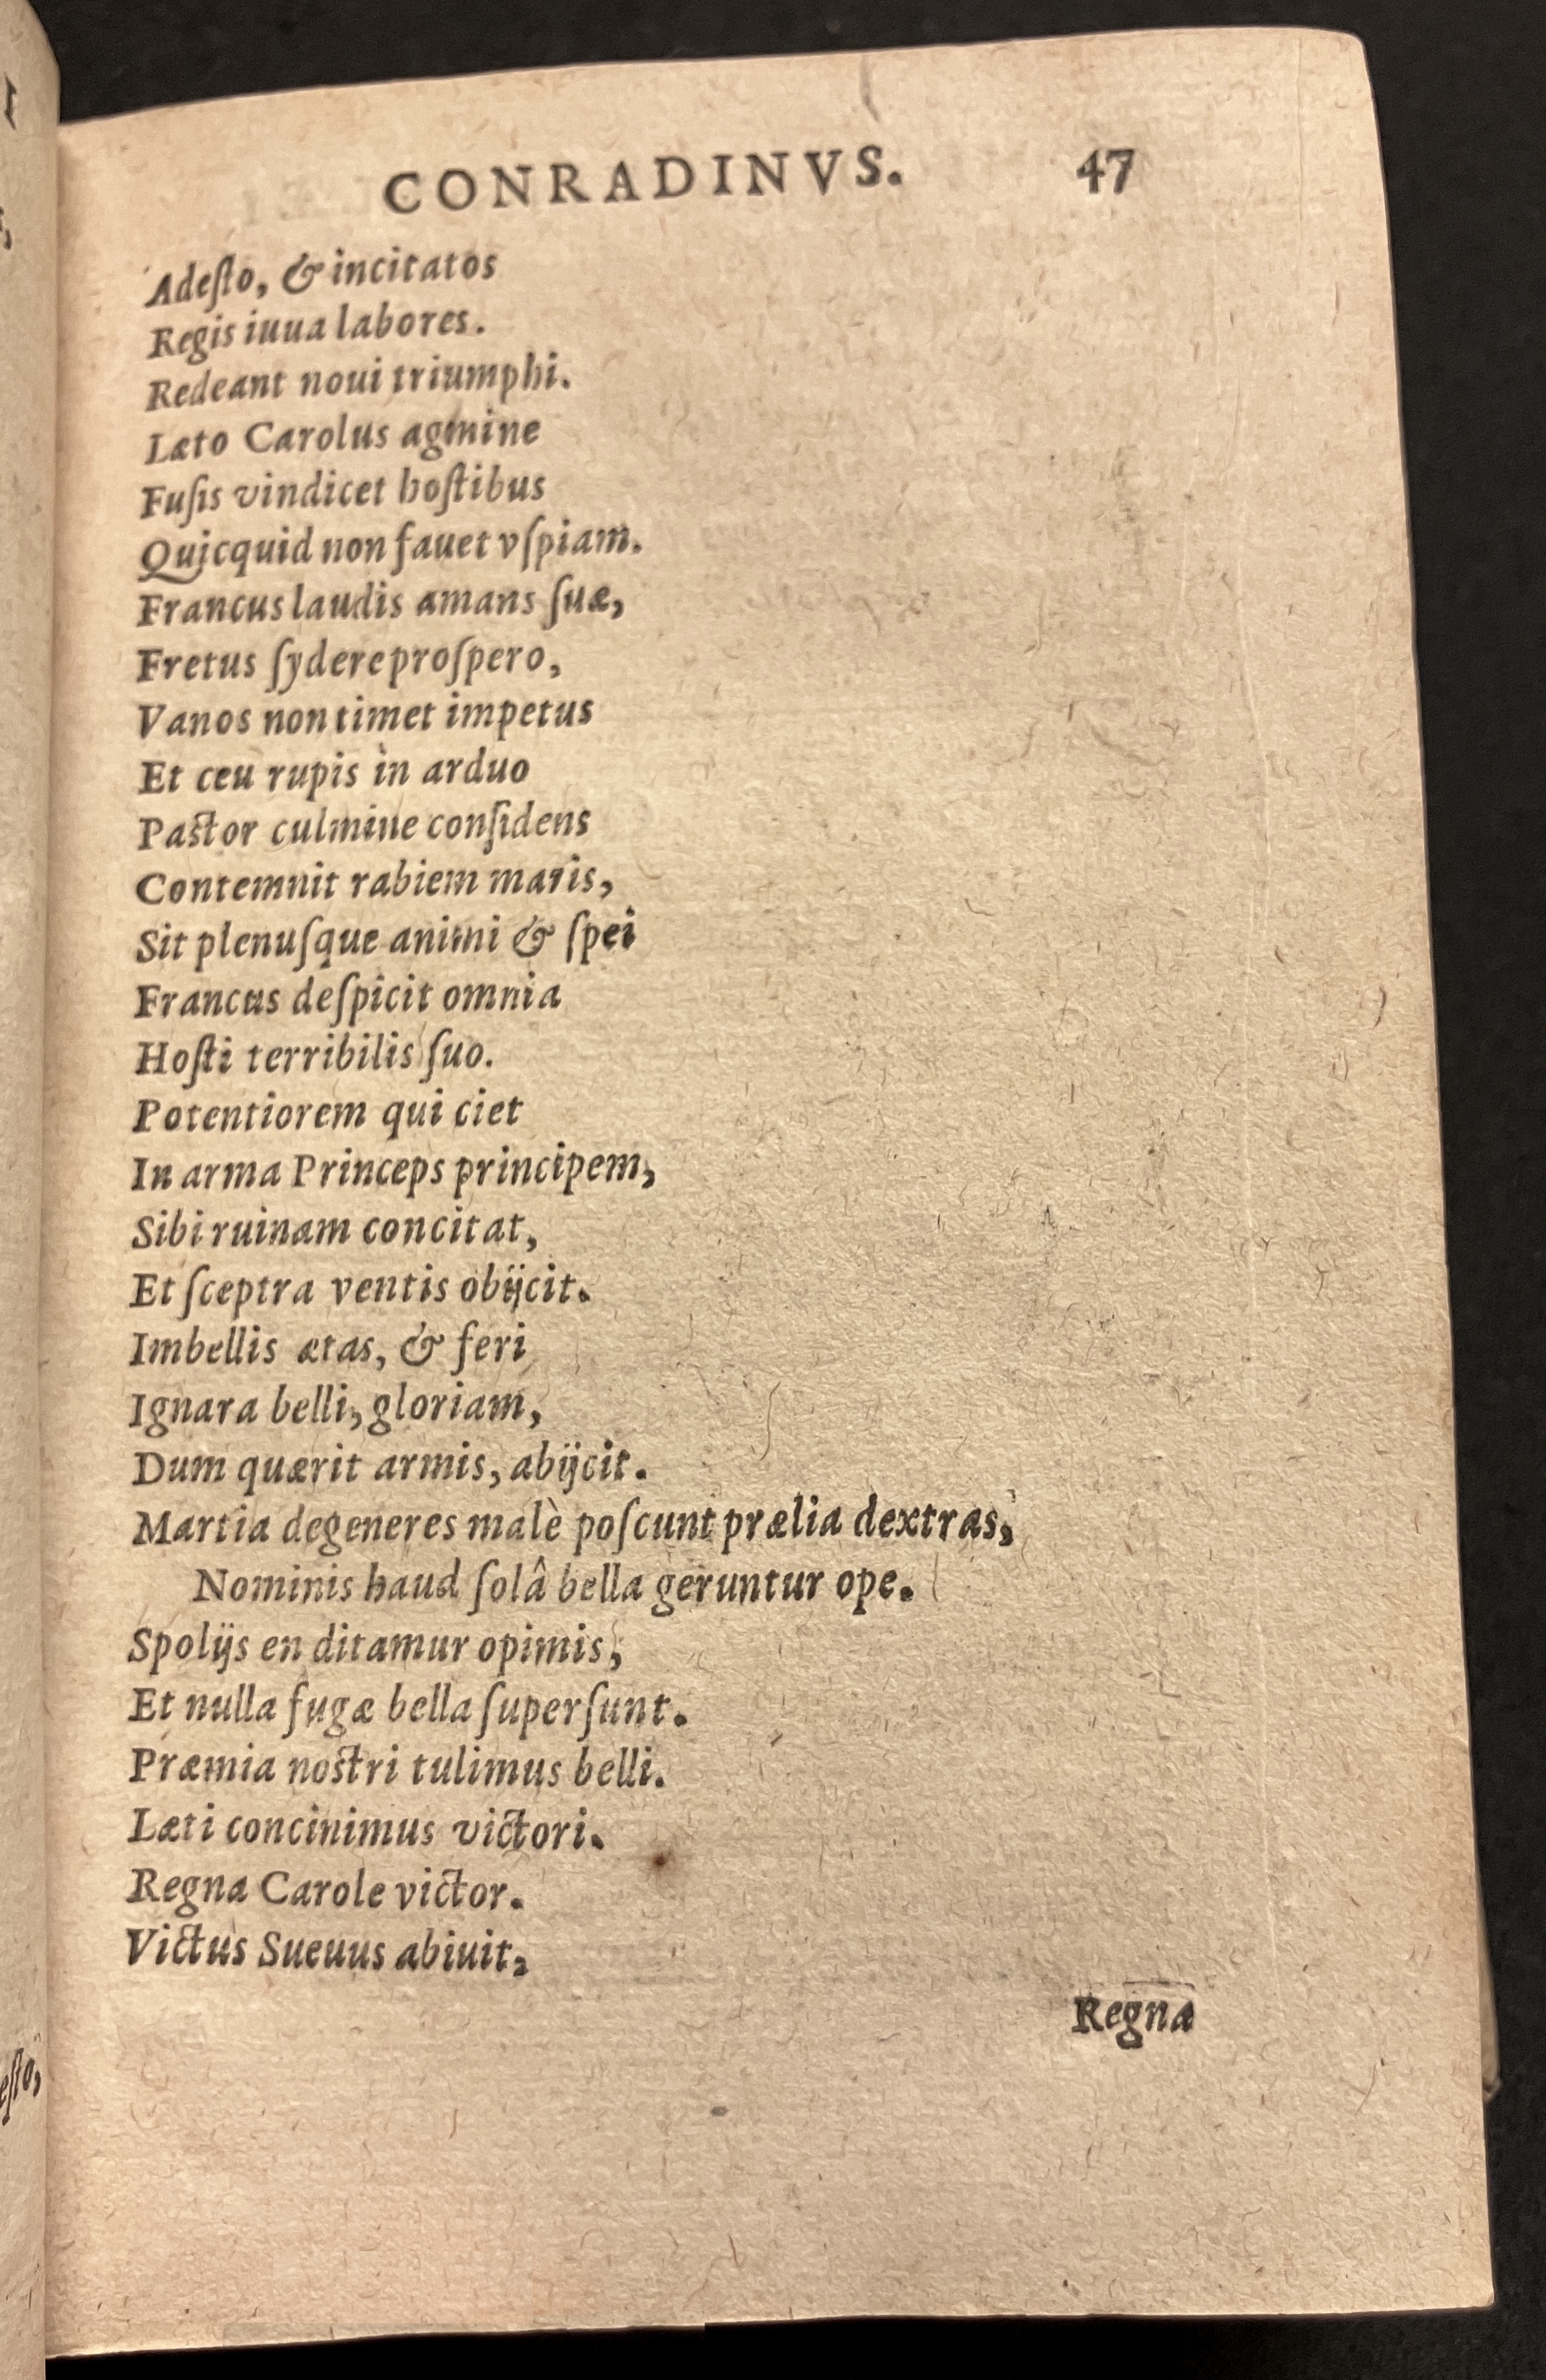 CONRADINVS. 47
Adeſto, & incitatos
Regis iuua labores.
Redeant noui triumphi.
Læto Carolus agmine
Fuſis vindicet hoſtibus
Quicquid non fauet vſpiam.
Francus laudis amans ſuæ,
Fretus ſydere proſpero,
Vanos non timet impetus
Et ceu rupis in arduo
Paſtor culmine conſidens
Contemnit rabiem maris,
Sit plenuſque animi & ſpei
Francus deſpicit omnia
Hoſti terribilis ſuo.
Potentiorem qui ciet
In arma Princeps principem,
Sibi ruinam concitat,
Et ſceptra ventis obijcit.
Imbellis ætas, & feri
Ignara belli, gloriam,
Dum quærit armis, abijcit.
Martia degeneres malè poſcunt prælia dextras,
Nominis haud ſolâ bella geruntur ope.
Spolijs en ditamur opimis,
Et nulla fugæ bella ſuperſunt.
Præmia noſtri tulimus belli.
Læti concinimus victori.
Regna Carole victor.
Victus Sueuus abiuit,
Regna
eſto,